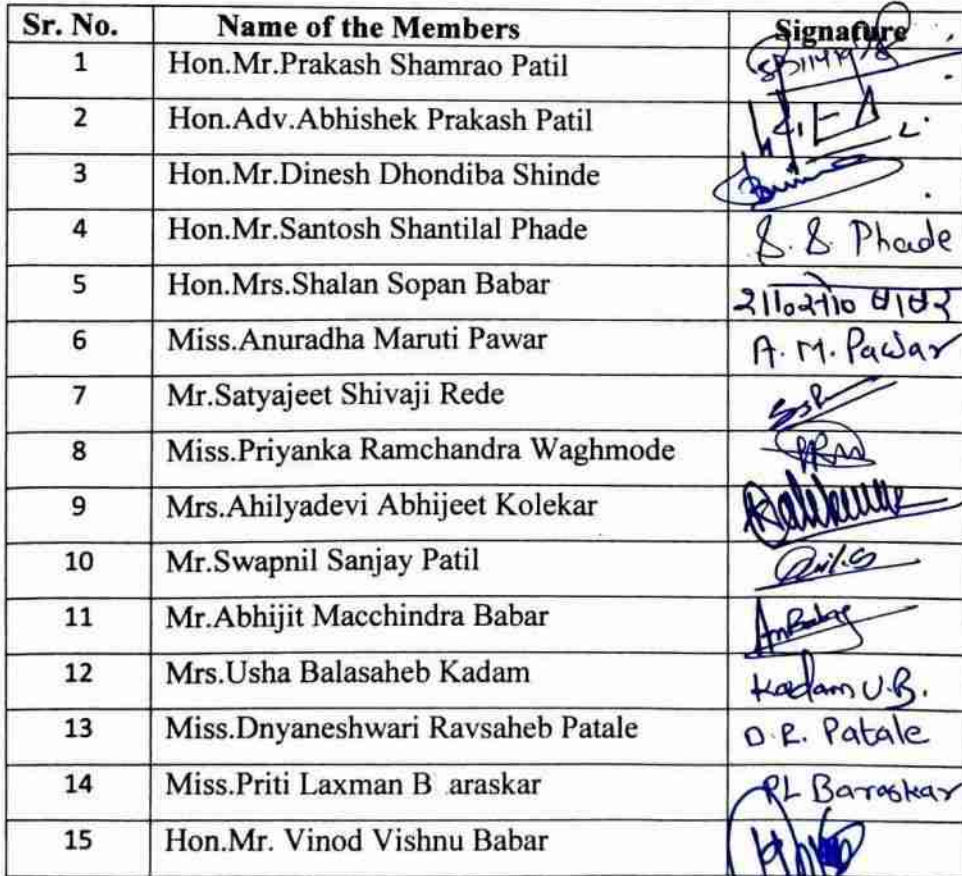 Sr. No. Name of the Members Signature
1 Hon.Mr.Prakash Shamrao Patil
2 Hon.Adv.Abhishek Prakash Patil
3 Hon.Mr.Dinesh Dhondiba Shinde
4 Hon.Mr.Santosh Shantilal Phade S. S. Phade
5 Hon.Mrs.Shalan Sopan Babar शा०सो० बाबर
6 Miss.Anuradha Maruti Pawar A. M. Pawar
7 Mr.Satyajeet Shivaji Rede
8 Miss.Priyanka Ramchandra Waghmode
9 Mrs.Ahilyadevi Abhijeet Kolekar
10 Mr.Swapnil Sanjay Patil
11 Mr.Abhijit Macchindra Babar
12 Mrs.Usha Balasaheb Kadam Kadam U.B.
13 Miss.Dnyaneshwari Ravsaheb Patale D.R. Patale
14 Miss.Priti Laxman B araskar PL Baraskar
15 Hon.Mr. Vinod Vishnu Babar